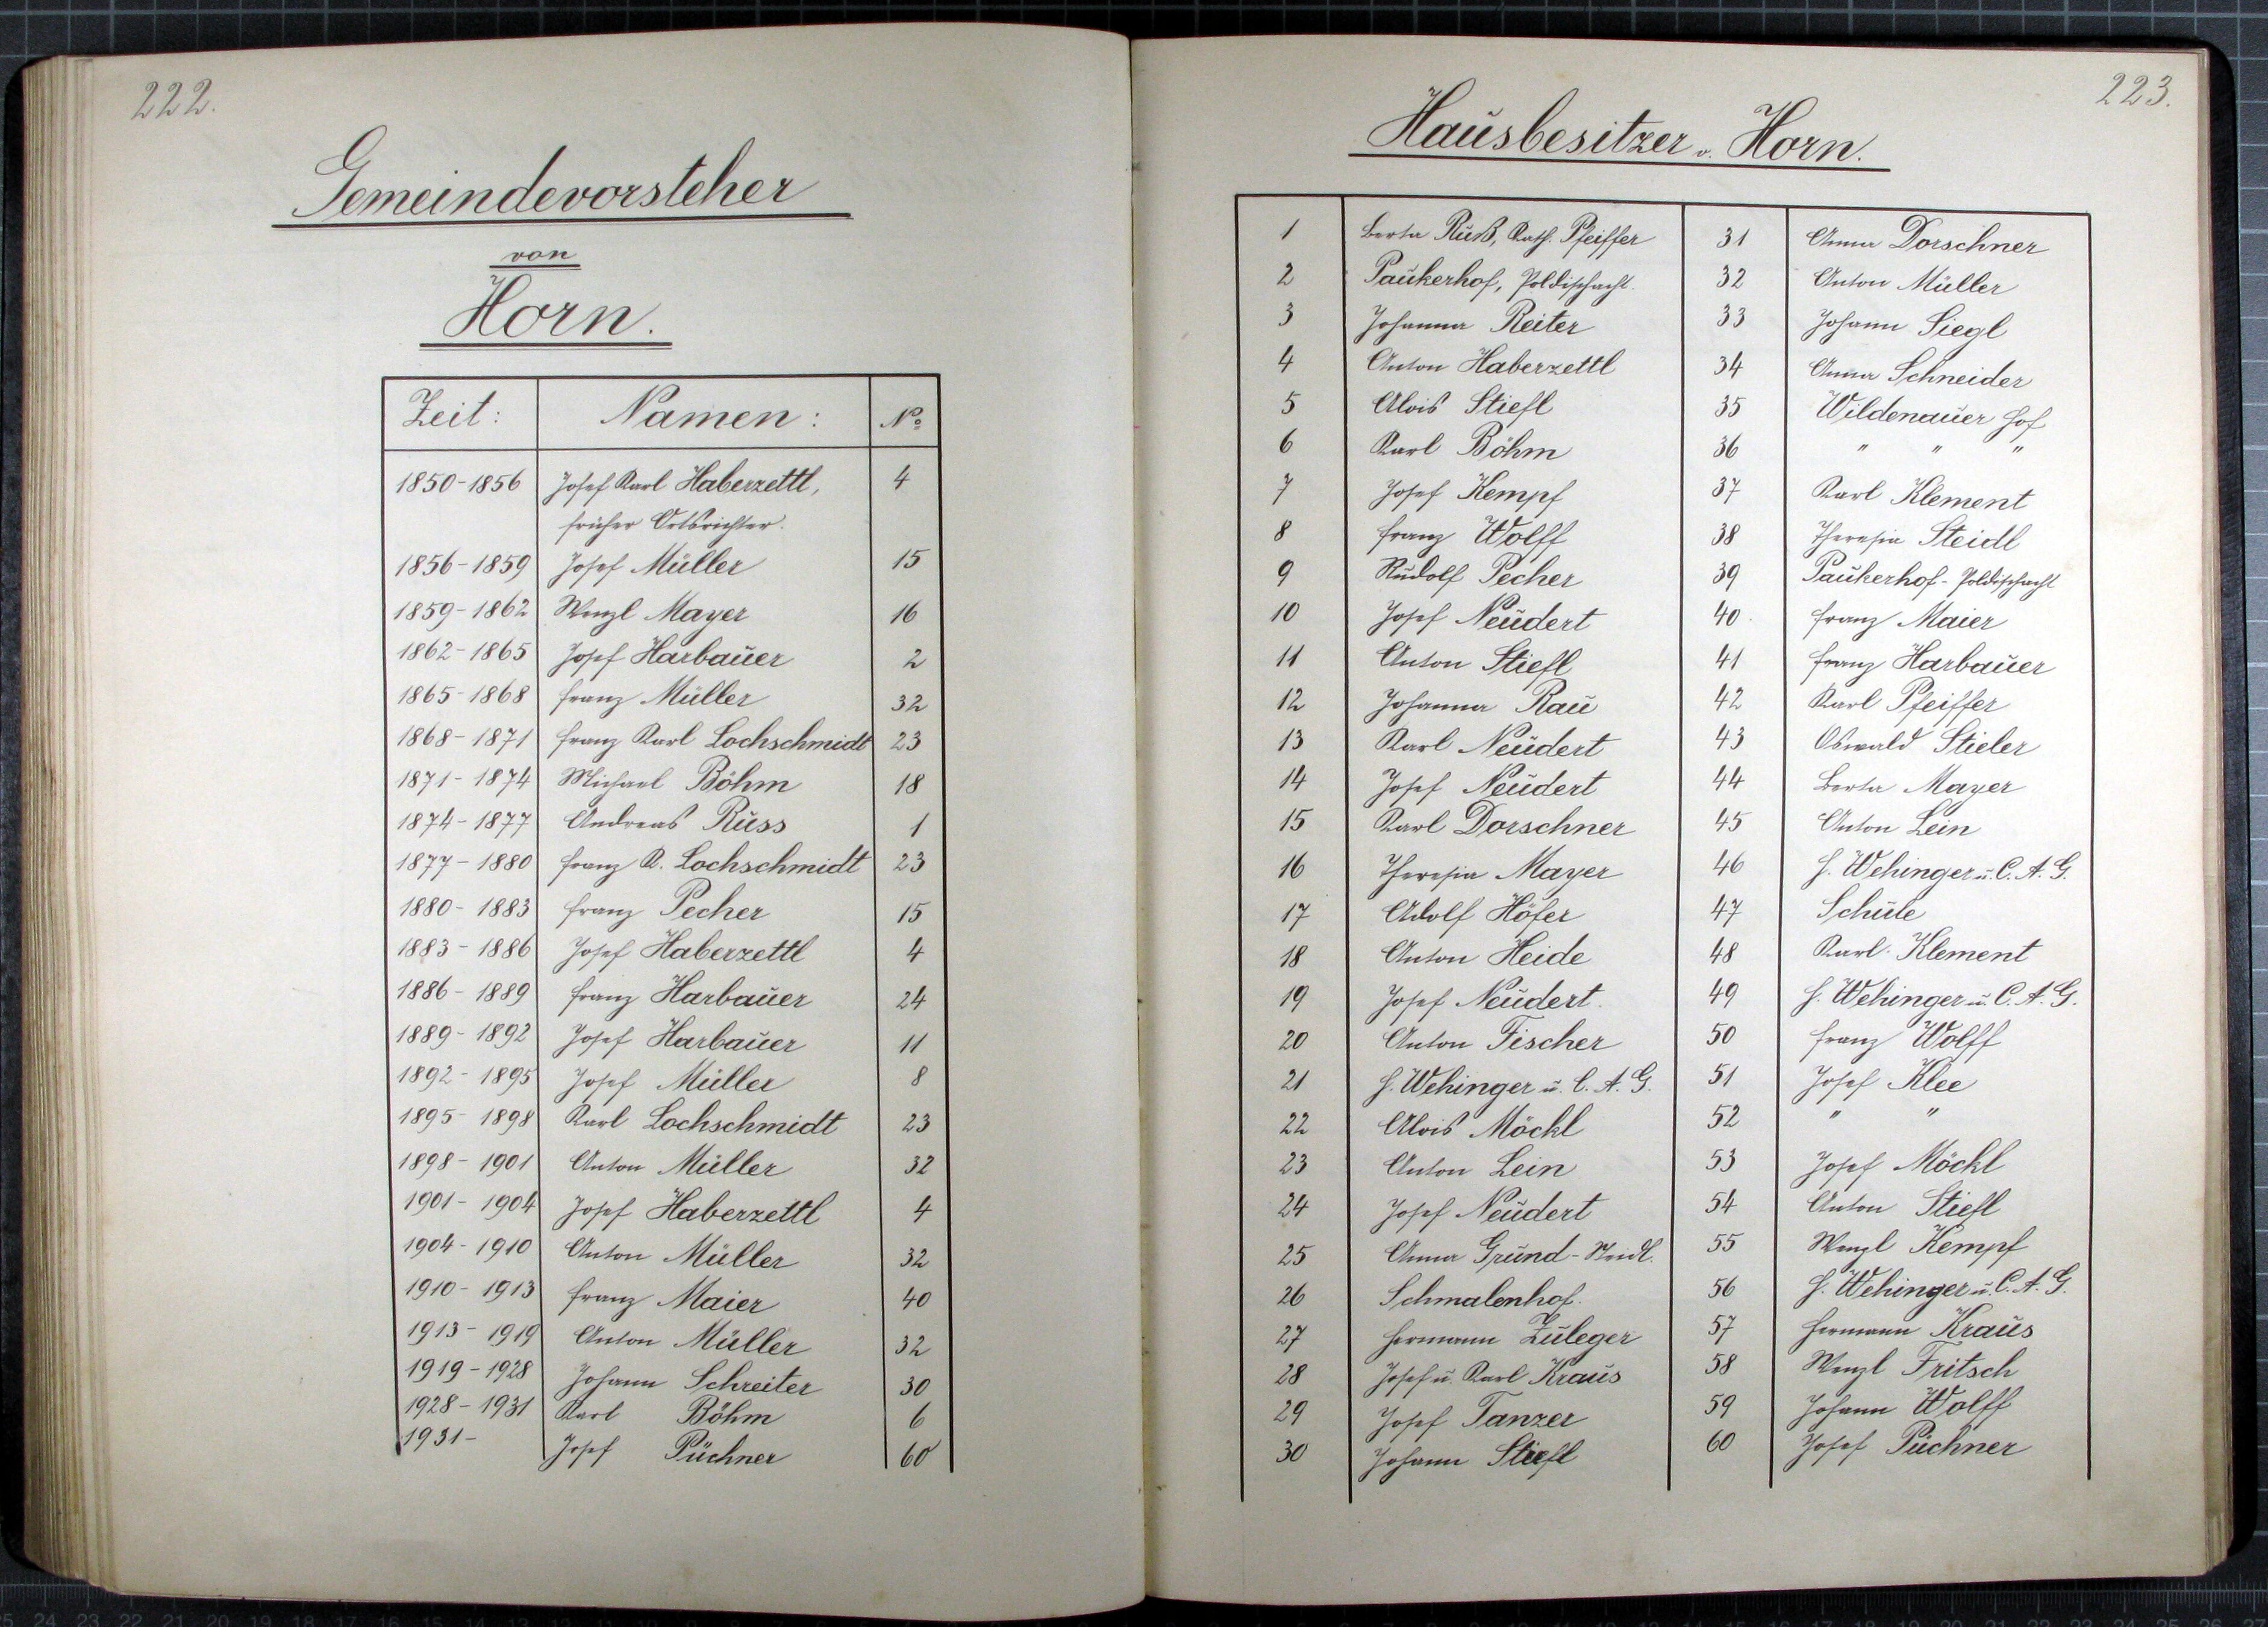 222.
Gemeindevorsteher
von
Horn.
Zeit: Namen: No
1850-1856 Josef Karl Haberzettl, 4
früher Ortsrichter.
1856-1859 Josef Müller 15
1859-1862 Wenzl Mayer 16
1862-1865 Josef Harbauer 2
1865-1868 Franz Müller 32
1868-1871 Franz Karl Lochschmidt 23
1871-1874 Michael Böhm 18
1874-1877 Andreas Russ 1
1877-1880 Franz K. Lochschmidt 23
1880-1883 Franz Pecher 15
1883-1886 Josef Haberzettl 4
1886-1889 Franz Harbauer 24
1889-1892 Josef Harbauer 11
1892-1895 Josef Müller 8
1895-1898 Karl Lochschmidt 23
1898-1901 Anton Müller 32
1901-1904 Josef Haberzettl 4
1904-1910 Anton Müller 32
1910-1913 Franz Maier 40
1913-1919 Anton Müller 32
1919-1928 Johann Schreiter 30
1928-1931 Karl Böhm 6
1931- Josef Püchner 60
223.
Hausbesitzer v. Horn.
1 Berta Ruß, Kath. Pfeiffer 31 Anna Dorschner
2 Paukerhof, Poldischacht. 32 Anton Müller
3 Johanna Reiter 33 Johann Siegl
4 Anton Haberzettl 34 Anna Schneider
5 Alois Stiefl 35 Wildenauer Hof
6 Karl Böhm 36 " " "
7 Josef Kempf 37 Karl Klement
8 Franz Wolff 38 Theresia Steidl
9 Rudolf Pecher 39 Paukerhof-Poldischacht
10 Josef Neudert 40 Franz Maier
11 Anton Stiefl 41 Franz Harbauer
12 Johanna Rau 42 Karl Pfeiffer
13 Karl Neudert 43 Oswald Stieler
14 Josef Neudert 44 Berta Mayer
15 Karl Dorschner 45 Anton Lein
16 Theresia Mayer 46 H. Wehinger u. C. A. G.
17 Adolf Höfer 47 Schule
18 Anton Heide 48 Karl Klement
19 Josef Neudert. 49 H. Wehinger u. C. A. G.
20 Anton Fischer 50 Franz Wolff
21 H. Wehinger u. C. A. G. 51 Josef Klee
22 Alois Möckl 52 " "
23 Anton Lein 53 Josef Möckl
24 Josef Neudert 54 Anton Stiefl
25 Anna Grund-Steidl. 55 Wenzl Kempf
26 Schmalenhof. 56 H. Wehinger u. C. A. G.
27 Hermann Zuleger 57 Hermann Kraus
28 Josef u. Karl Kraus 58 Wenzl Fritsch
29 Josef Tanzer 59 Johann Wolff
30 Johann Stiefl 60 Josef Püchner